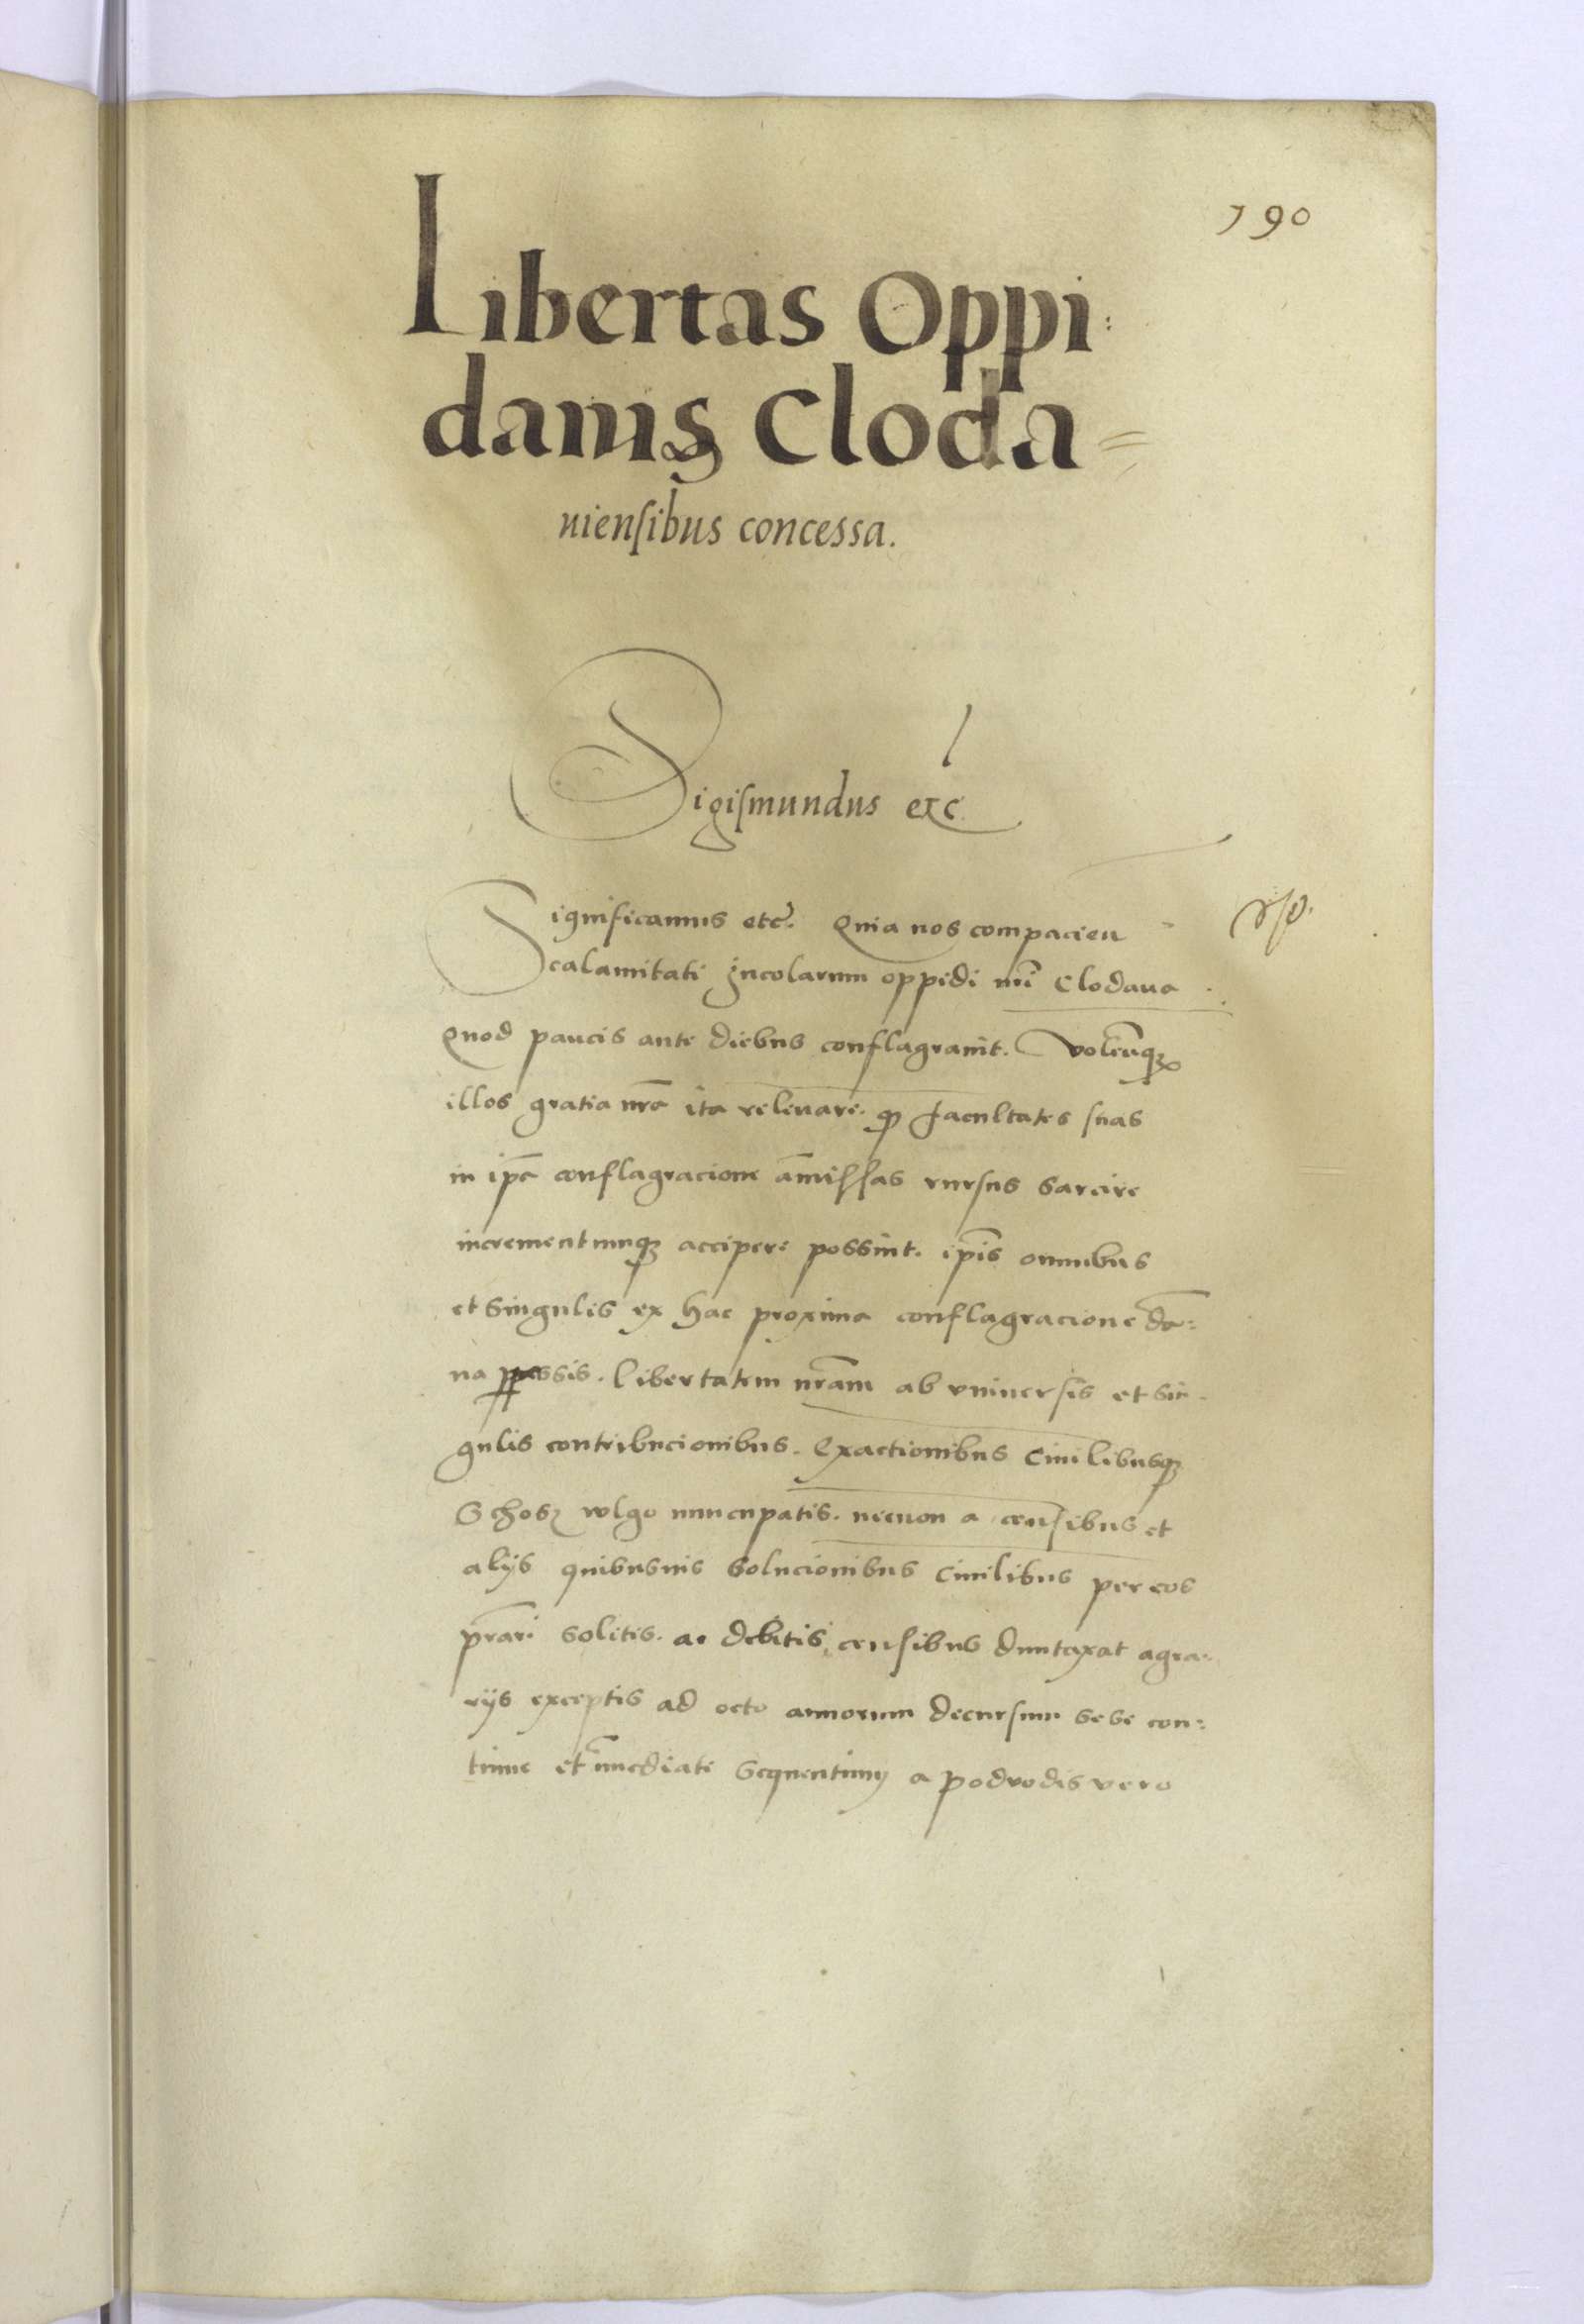 190
Libertas Oppi:
danis Cloda=
uiensibus concessa.
Sigismundus etc
Significamus etc. Quia nos compacien
calamitati Incolarum oppidi nrī Clodaua
Quod paucis ante diebus conflagrauit. Volentesq;
illos gratia nrā ita releuare. qp facultates suas
in ipā conflagracione amissas rursus sarcire
incrementumq; accipere possint. ipīs omnibus
et singulis ex hac proxima conflagracione dā:
na ppessis. libertatem nrām ab vniuersis et sin-
gulis contribucionibus. Exactionibus Ciuilibusq;
Schosz wlgo nuncupatis. necnon a censibus et
alijs quibusuis solucionibus Ciuilibus per eos
prāri solitis. ac debitis, censibus duntaxat agra:
rijs exceptis ad octo annorum decursum sese con:
tinue et īmediate sequentium a podvodis vero